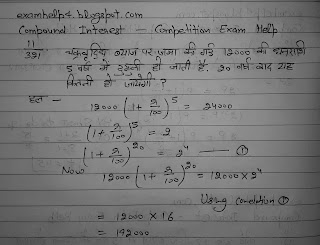 examhelp4.blogspot.com
Compound Interest – Competition Exam Help
11
391 चक्रवृद्धि ब्याज पर जमा की गई 12000 की धनराशि
5 वर्ष में दुगुनी हो जाती है. 20 वर्ष बाद यह
कितनी हो जायेगी ?
हल –
12000 (1 + r/100)^5 = 24000
(1 + r/100)^5 = 2
(1 + r/100)^20 = 2^4 — ①
Now 12000 (1 + r/100)^20 = 12000 × 2^4
Using condition ①
= 12000 × 16
= 192000